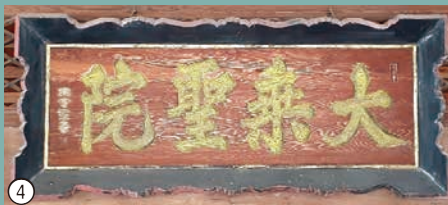 大乘聖院
④